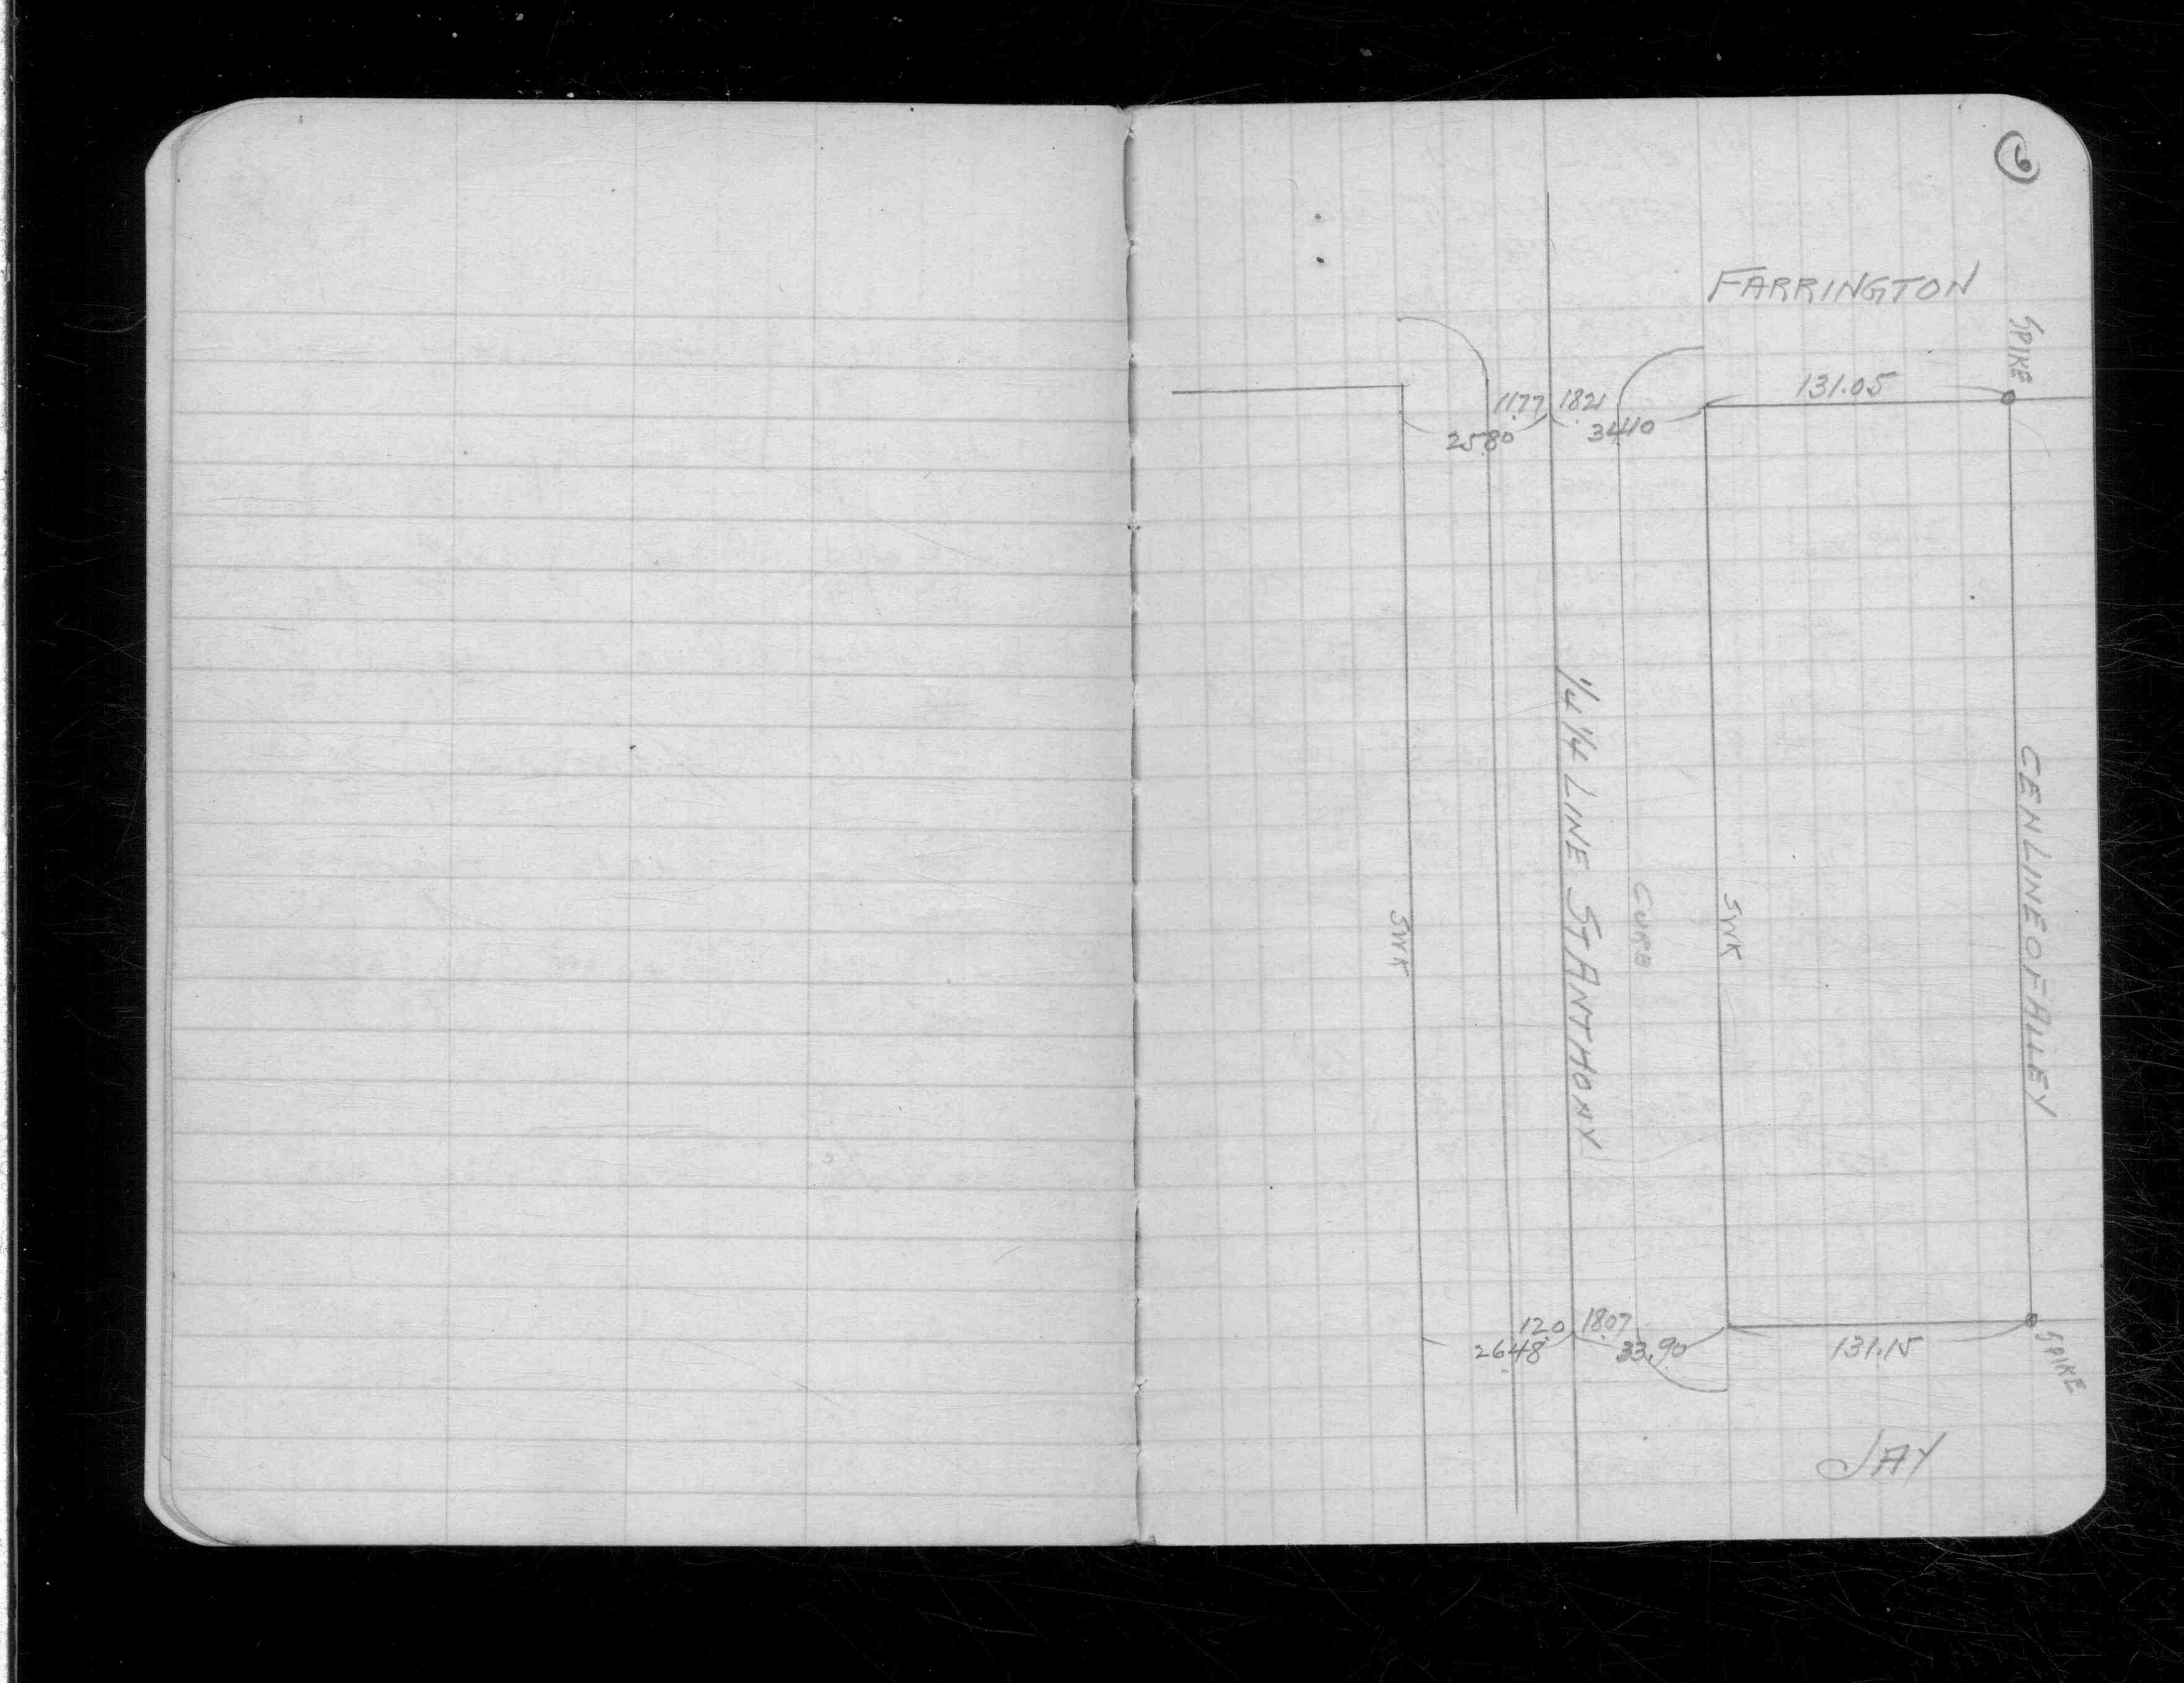 6
FARRINGTON
SPIKE
131.05
11.77 18.21
25.80 34.10
1/4 1/4 LINE ST ANTHONY
CEN LINE OF ALLEY
CURB
SWK
SWK
12.0 18.07
26.48 33.90
131.15
SPIKE
JAY